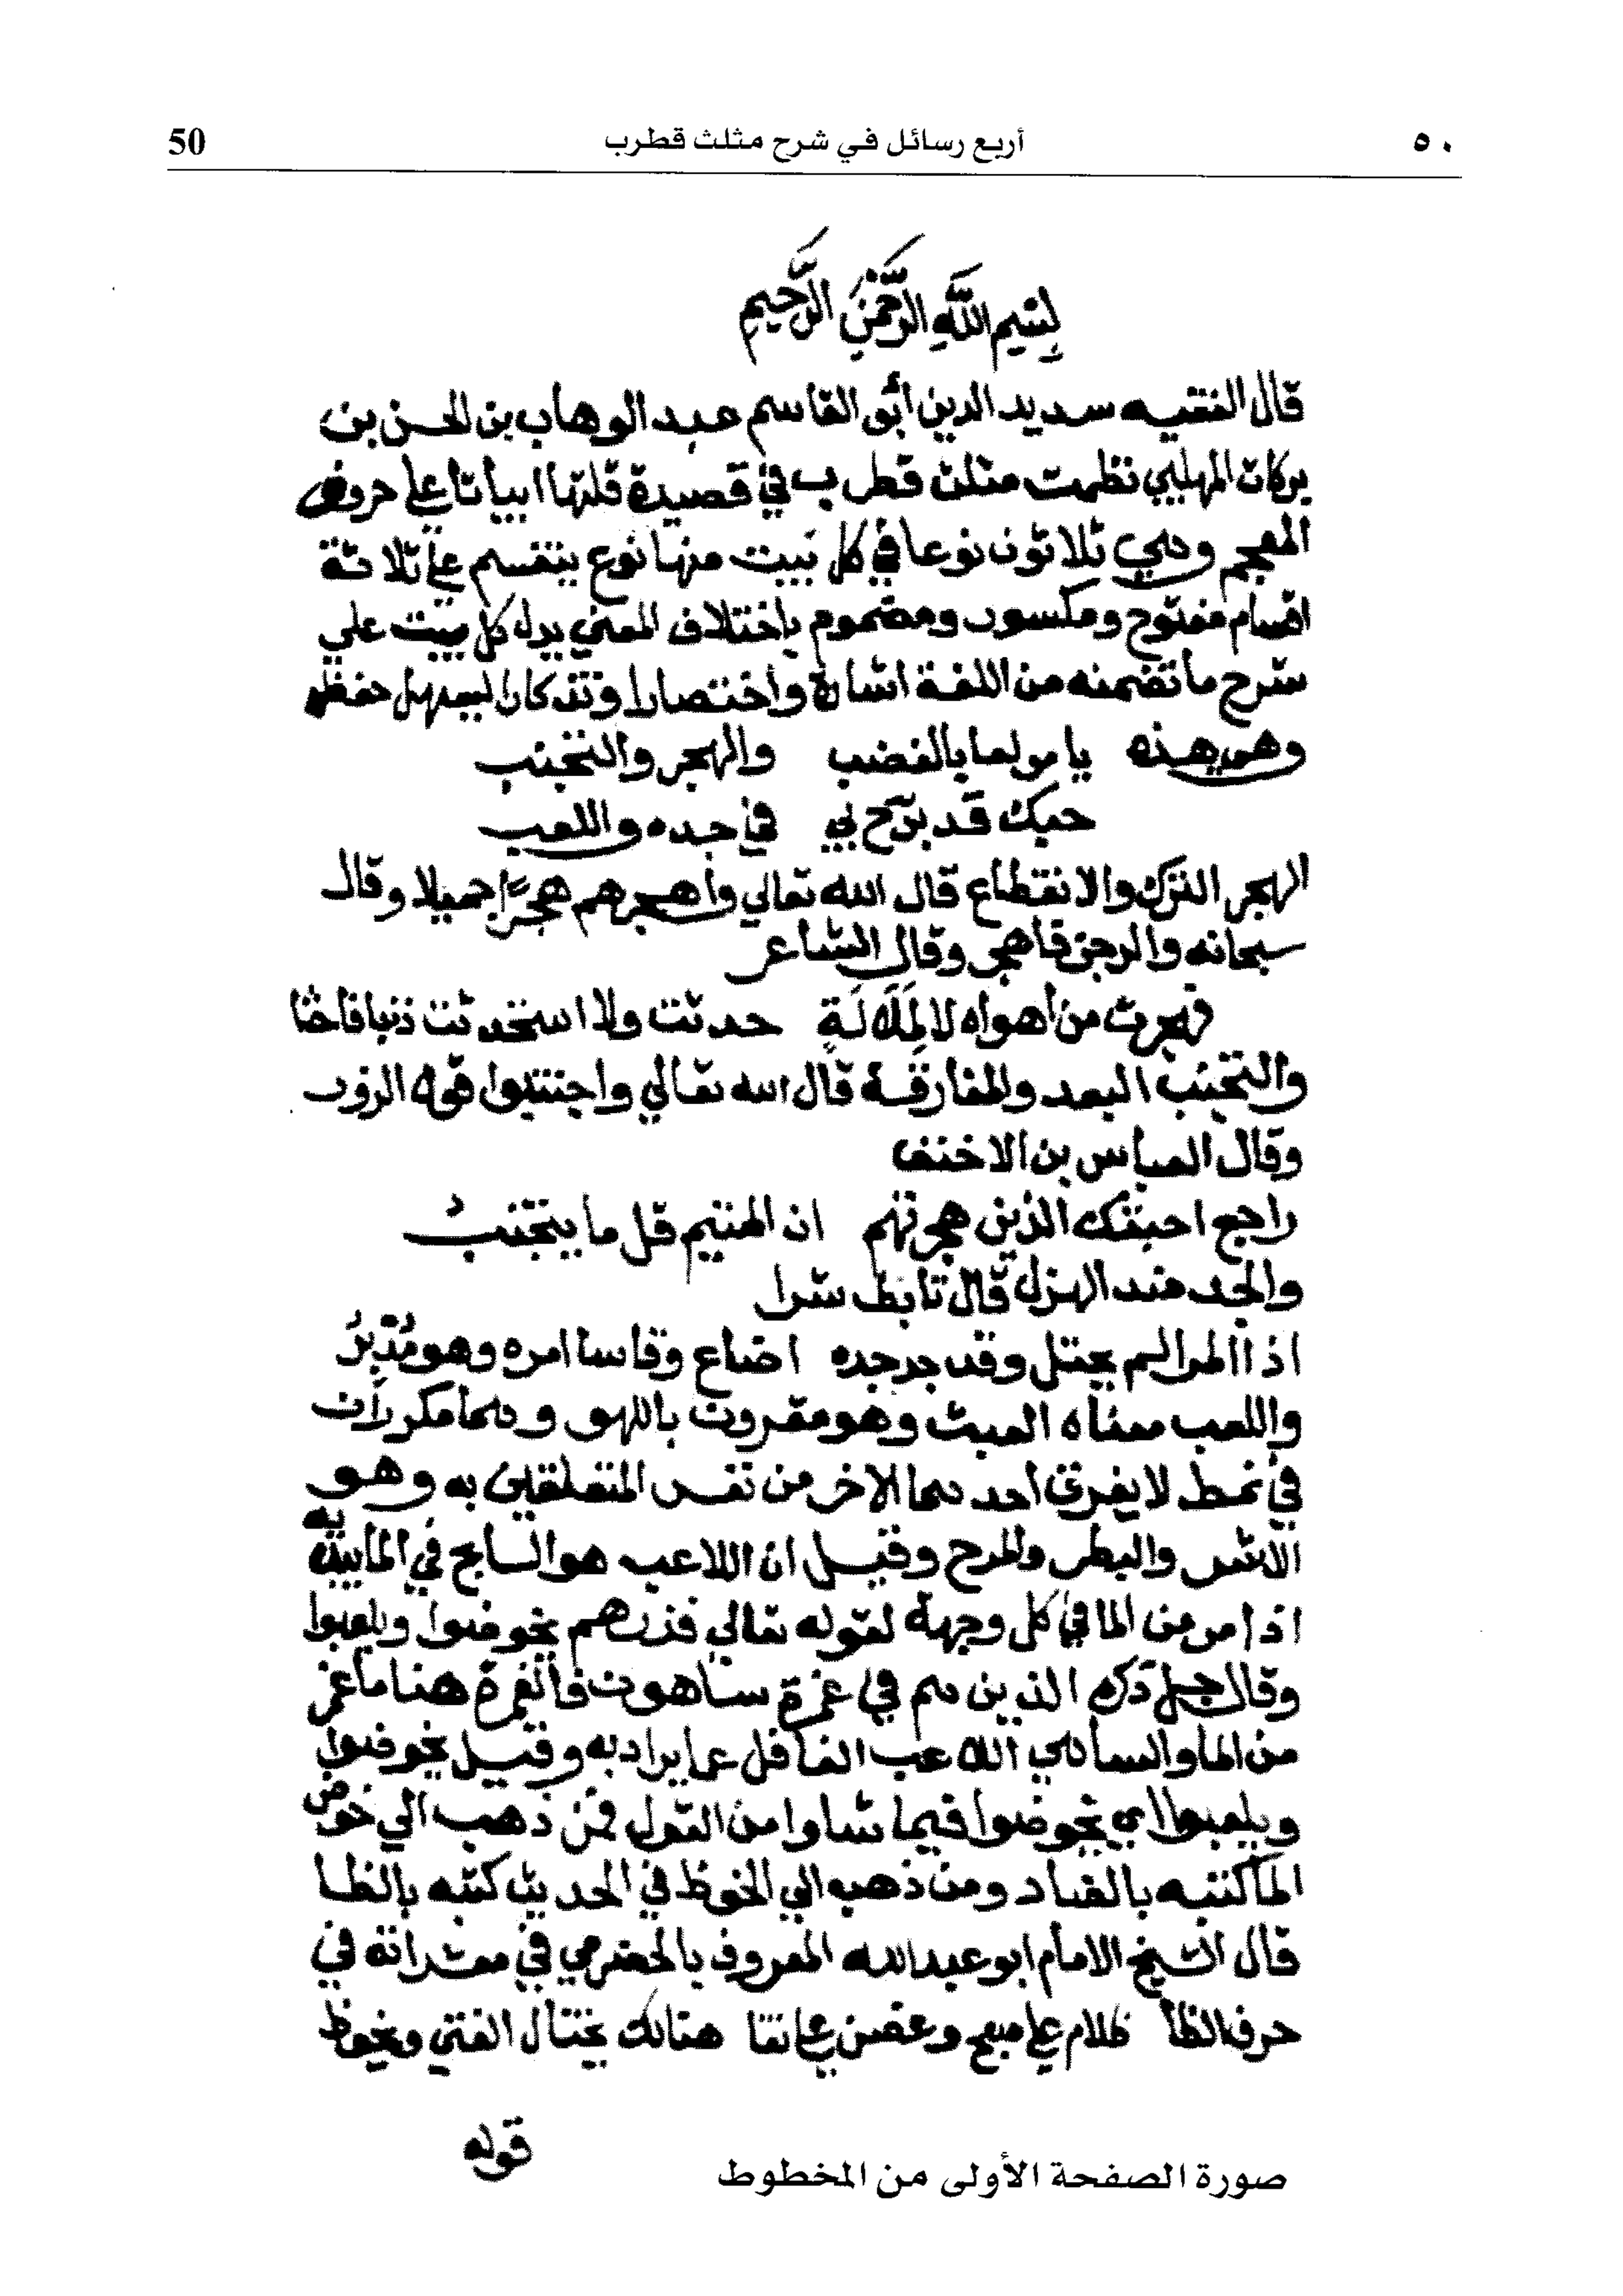 ٥٠ أربع رسائل في شرح مثلث قطرب 50
بِسْمِ اللَّهِ الرَّحْمَنِ الرَّحِيمِ
قال الفقيه سديد الدين أبو القاسم عبد الوهاب بن الحسن بن
بركات المهلبي نظمت مثلث قطرب في قصيدة قلتها ابياتا علي حروف
المعجم وهي ثلاثون نوعا في كل بيت منها نوع ينقسم علي ثلاثة
اقسام مفتوح ومكسور ومضموم باختلاف المعني يدل كل بيت علي
شرح ما تضمنه من اللغة اشارة واختصارا وتذكارا ليسهل حفظه
وهي هذه يا مولعا بالغضب والهجر والتجنب
حبك قد برّح بي في جده واللعب
الهجر الترك والانقطاع قال الله تعالي واهجرهم هجرًا جميلا وقال
سبحانه والرجز فاهجر وقال الشاعر
هجرت من أهواه لا لِمَلَالَةٍ حدثت ولا استحدثت ذنبا فاحشا
والتجنب البعد والمفارقة قال الله تعالي واجتنبوا قول الزور
وقال العباس بن الاحنف
راجع احبتك الذين هجرتهم ان المتيم قل ما يتجنبُ
والجد ضد الهزل قال تابط شرا
اذا المرا لم يحتل وقد جد جده اضاع وقاسا امره وهو مُدْبِرُ
واللعب معناه العبث وهو مقرون باللهو وهما مكرران
في نمط لا يفرق احدهما الاخر من نفس المتعلقين به وهو
الاشر والبطر والمرح وقيل ان اللاعب هو السابح في الما يبديه
اذا مر من الما في كل وجهة لقوله تعالي فذرهم يخوضوا ويلعبوا
وقال جل ذكره الذين هم في غمرة ساهون فالغمرة هنا ما غمر
من الما والساهي اللاعب الغافل عما يراد به وقيل يخوضوا
ويلعبوا اي يخوضوا فيما شاوا من القول فمن ذهب الي خوض
الما كتبه بالضاد ومن ذهب الي الخوظ في الحديث كتبه بالظا
قال الشيخ الامام ابو عبد الله المعروف بالحضرمي في معشراته في
حرف الظا ظلام علي صبح وغصن علي نقا هنالك يختال الفتي ويخوظ
قوله
صورة الصفحة الأولى من المخطوط